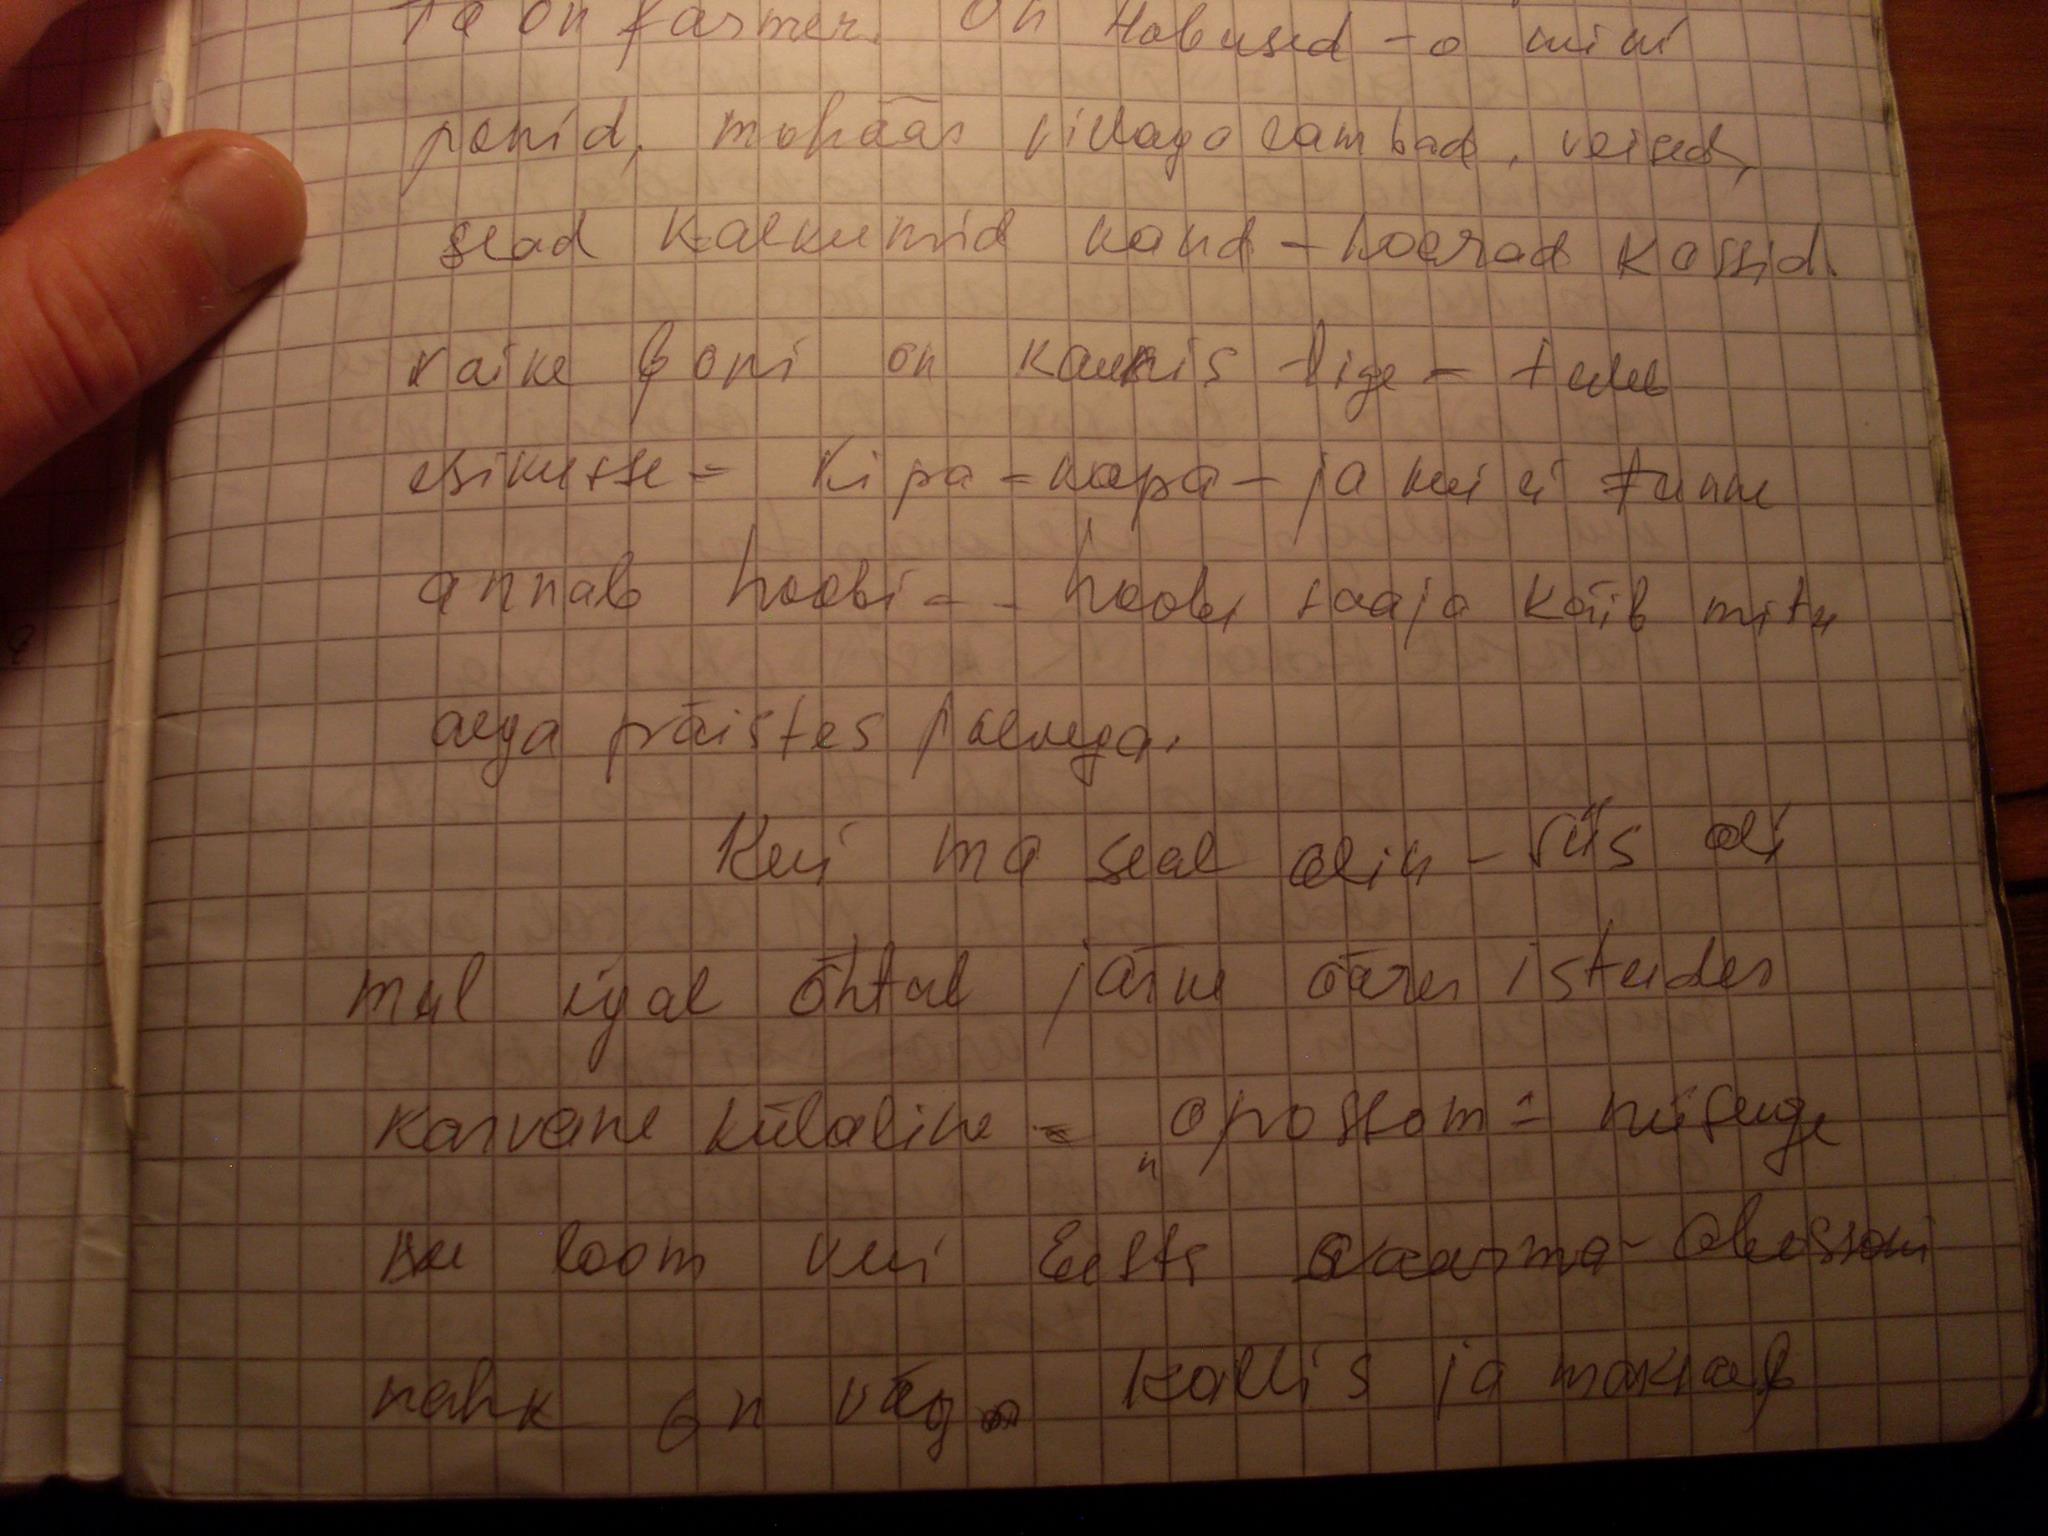 Ta on farmer. On Hobused - o mini
ponid, mohääs villaga lambad, veised,
sead kalkunid kanad - koerad kassid.
väike poni on kaunis tige - tuleb
esikusse = kipa = kapa - ja kui ei tunne
annab hoobi - - hoobi saaja käib mitu
aega püistes põlvega.
Kui ma seal olin - siis oli
mul igal õhtul järve ääres istudes
karvane külaline = „opossom = niisuge
see loom kui Eesti saarma - obossomi
nahk on väga kallis ja maksab